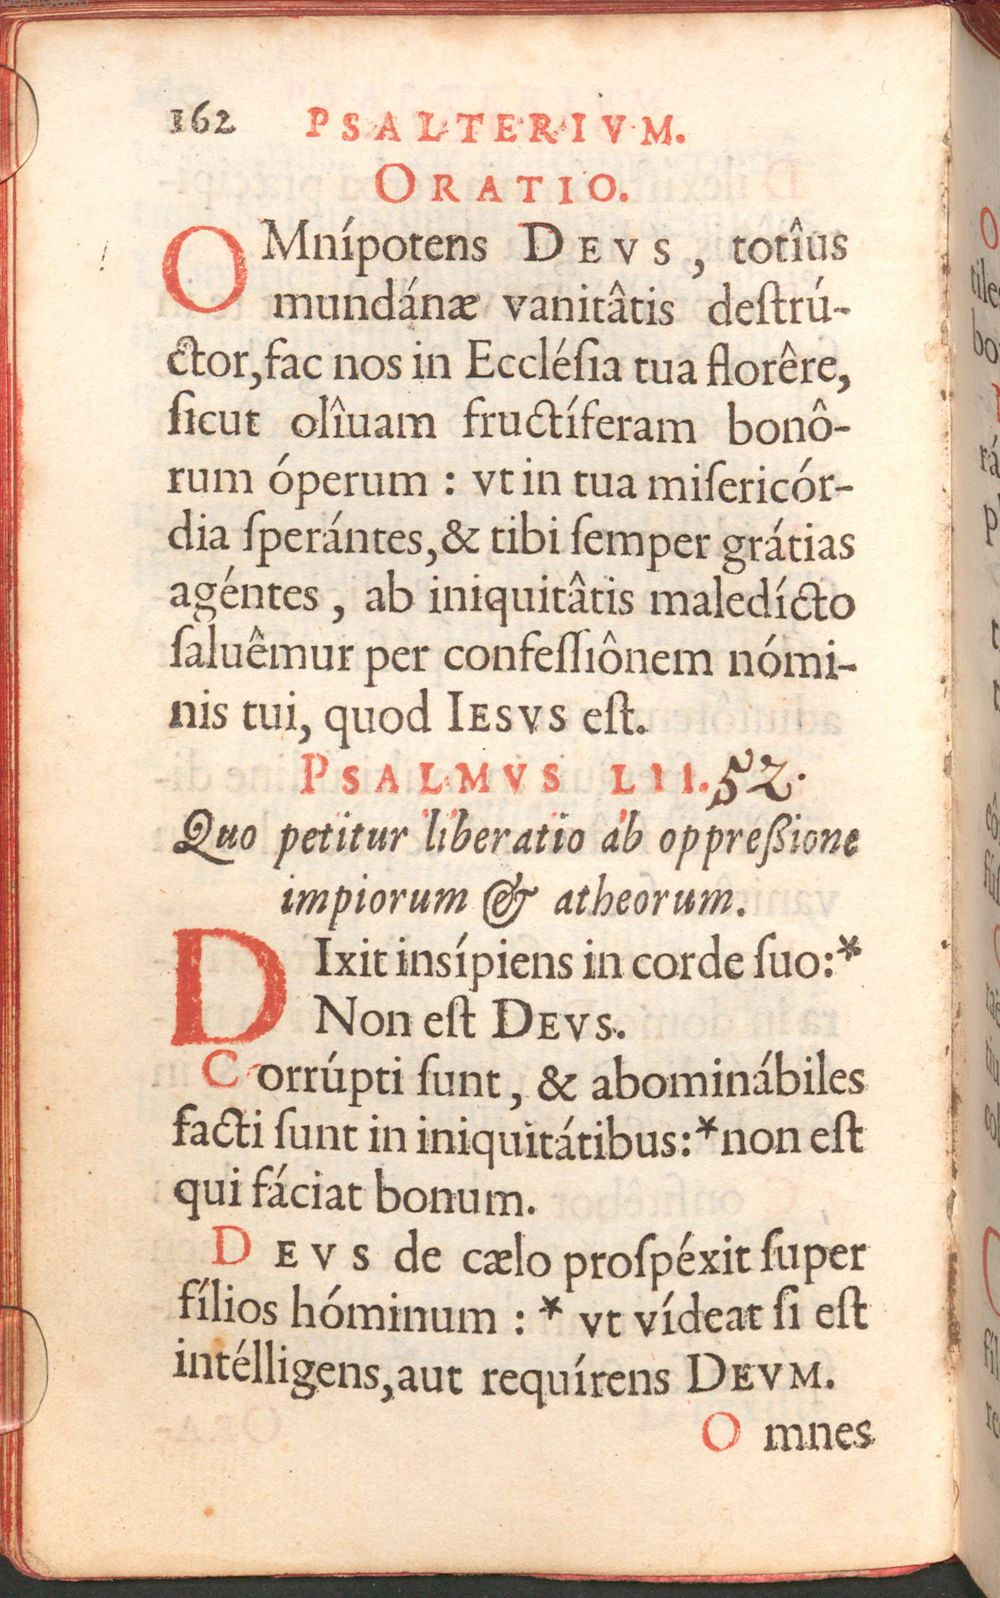 162 PSALTERIVM.
ORATIO.
OMnípotens DEVS, totîus
mundánæ vanitâtis deſtrú-
ctor, fac nos in Eccléſia tua florêre,
ſicut olîuam fructíferam bonô-
rum óperum : vt in tua miſericór-
dia ſperántes, & tibi ſemper grátias
agéntes, ab iniquitâtis maledícto
ſaluêmur per confeſſiônem nómi-
nis tui, quod IESVS eſt.
PSALMVS LII. 52.
Quo petitur liberatio ab oppreßione
impiorum & atheorum.
DIxit insípiens in corde ſuo:*
Non eſt DEVS.
Corrúpti ſunt, & abominábiles
facti ſunt in iniquitátibus:* non eſt
qui fáciat bonum.
DEVS de cælo proſpéxit ſuper
fílios hóminum : * vt vídeat ſi eſt
intélligens, aut requírens DEVM.
Omnes